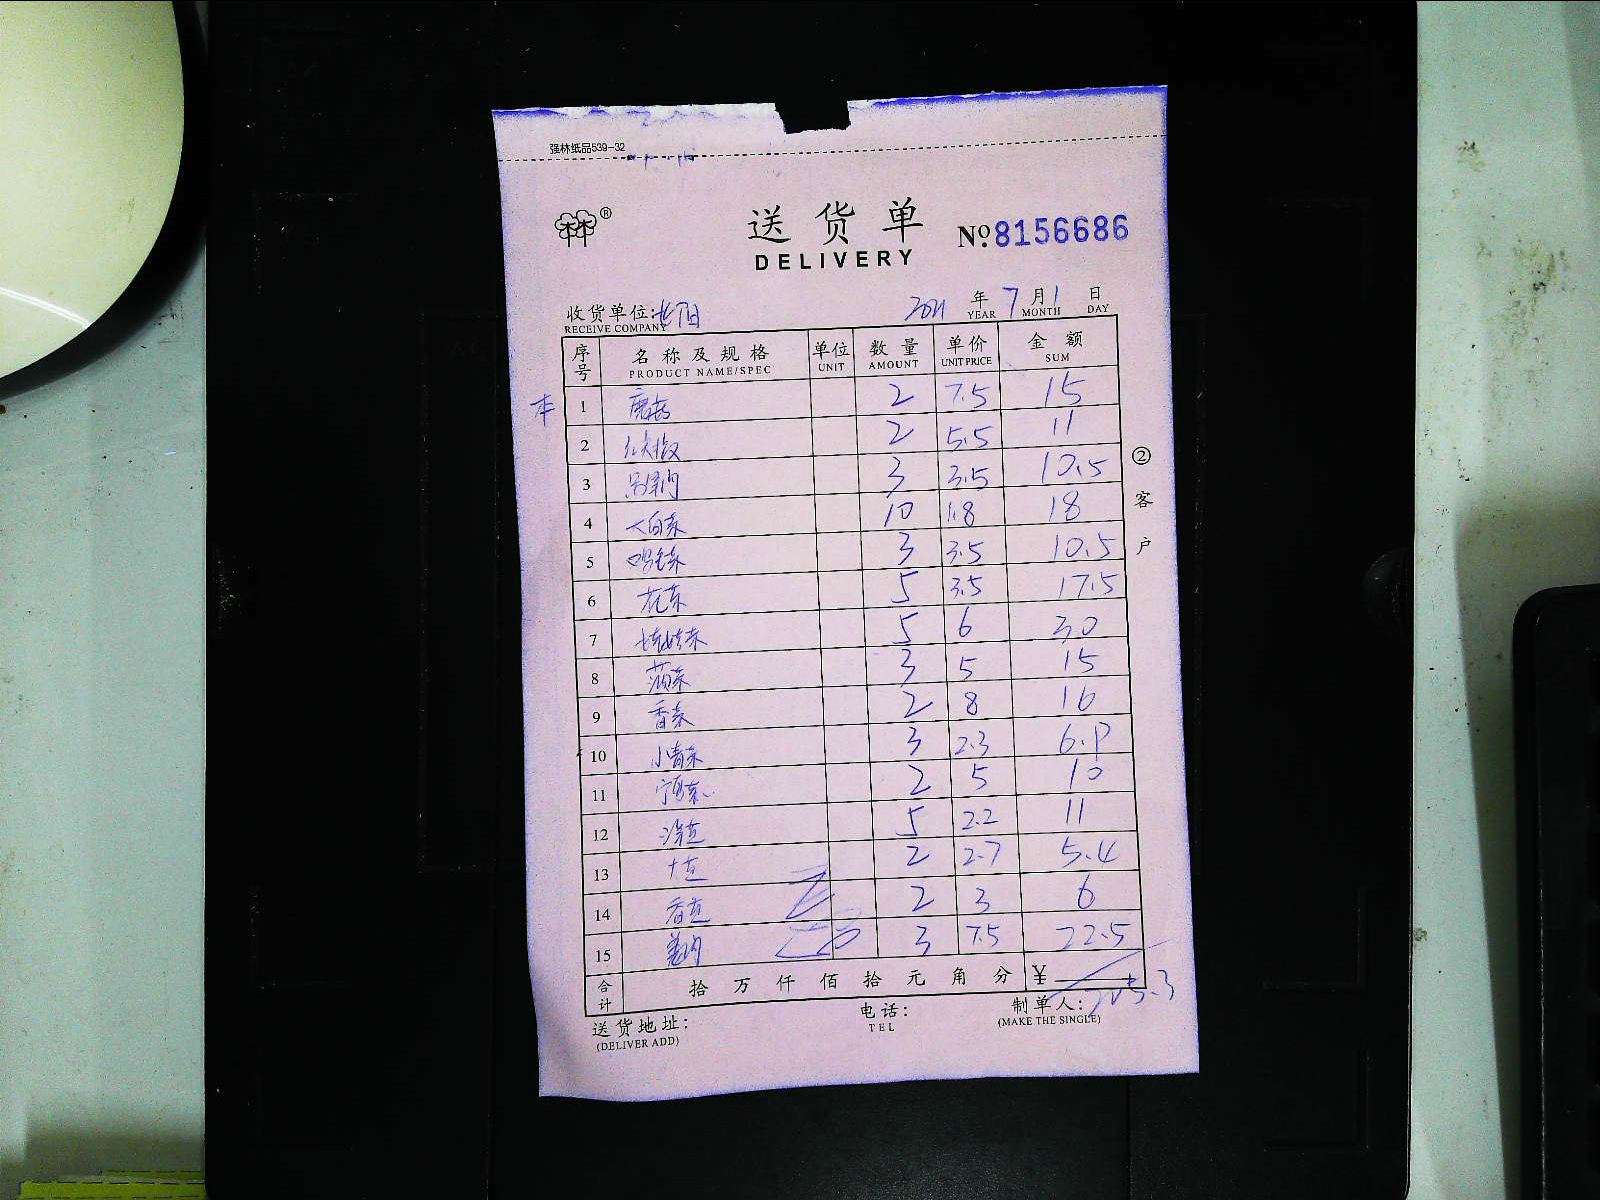 强林纸品539-32
林 ®
送货单
No.8156686
DELIVERY
收货单位: 2021 年 7 月 1 日
RECEIVE COMPANY YEAR MONTH DAY
序号 名称及规格 单位 数量 单价 金额
PRODUCT NAME/SPEC UNIT AMOUNT UNIT PRICE SUM
1 2 7.5 15
2 红尖椒 2 5.5 11
3 3 3.5 10.5
4 大白菜 10 1.8 18
5 3 3.5 10.5
6 花菜 5 3.5 17.5
7 5 6 30
8 3 5 15
9 香菜 2 8 16
10 小青菜 3 2.3 6.9
11 2 5 10
12 5 2.2 11
13 2 2.7 5.4
14 2 3 6
15 3 7.5 22.5
合计 拾 万 仟 佰 拾 元 角 分 ¥ 205.3
② 客户
送货地址: 电话: 制单人:
(DELIVER ADD) TEL (MAKE THE SINGLE)